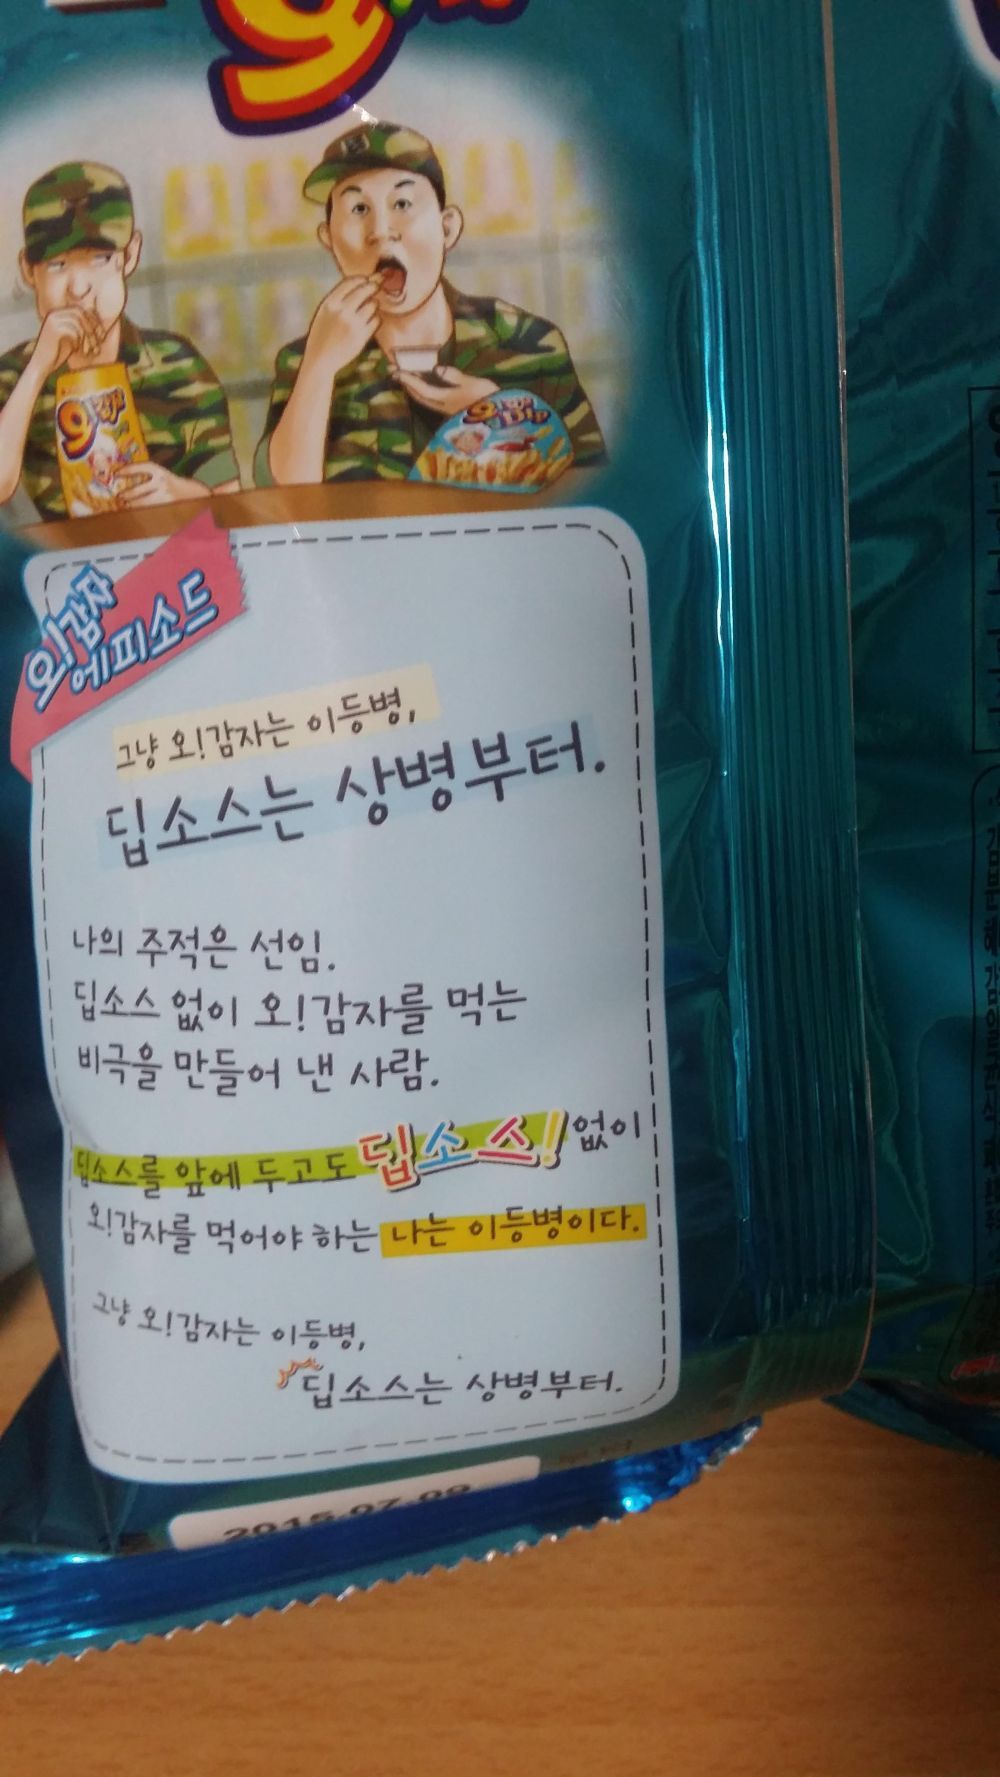 오!감자
오!감자 Dip
오!감자
에피소드
그냥 오!감자는 이등병,
딥소스는 상병부터.
나의 주적은 선임.
딥소스 없이 오!감자를 먹는
비극을 만들어 낸 사람.
딥소스를 앞에 두고도 딥소스! 없이
오!감자를 먹어야 하는 나는 이등병이다.
그냥 오!감자는 이등병,
딥소스는 상병부터.
2015.07.09